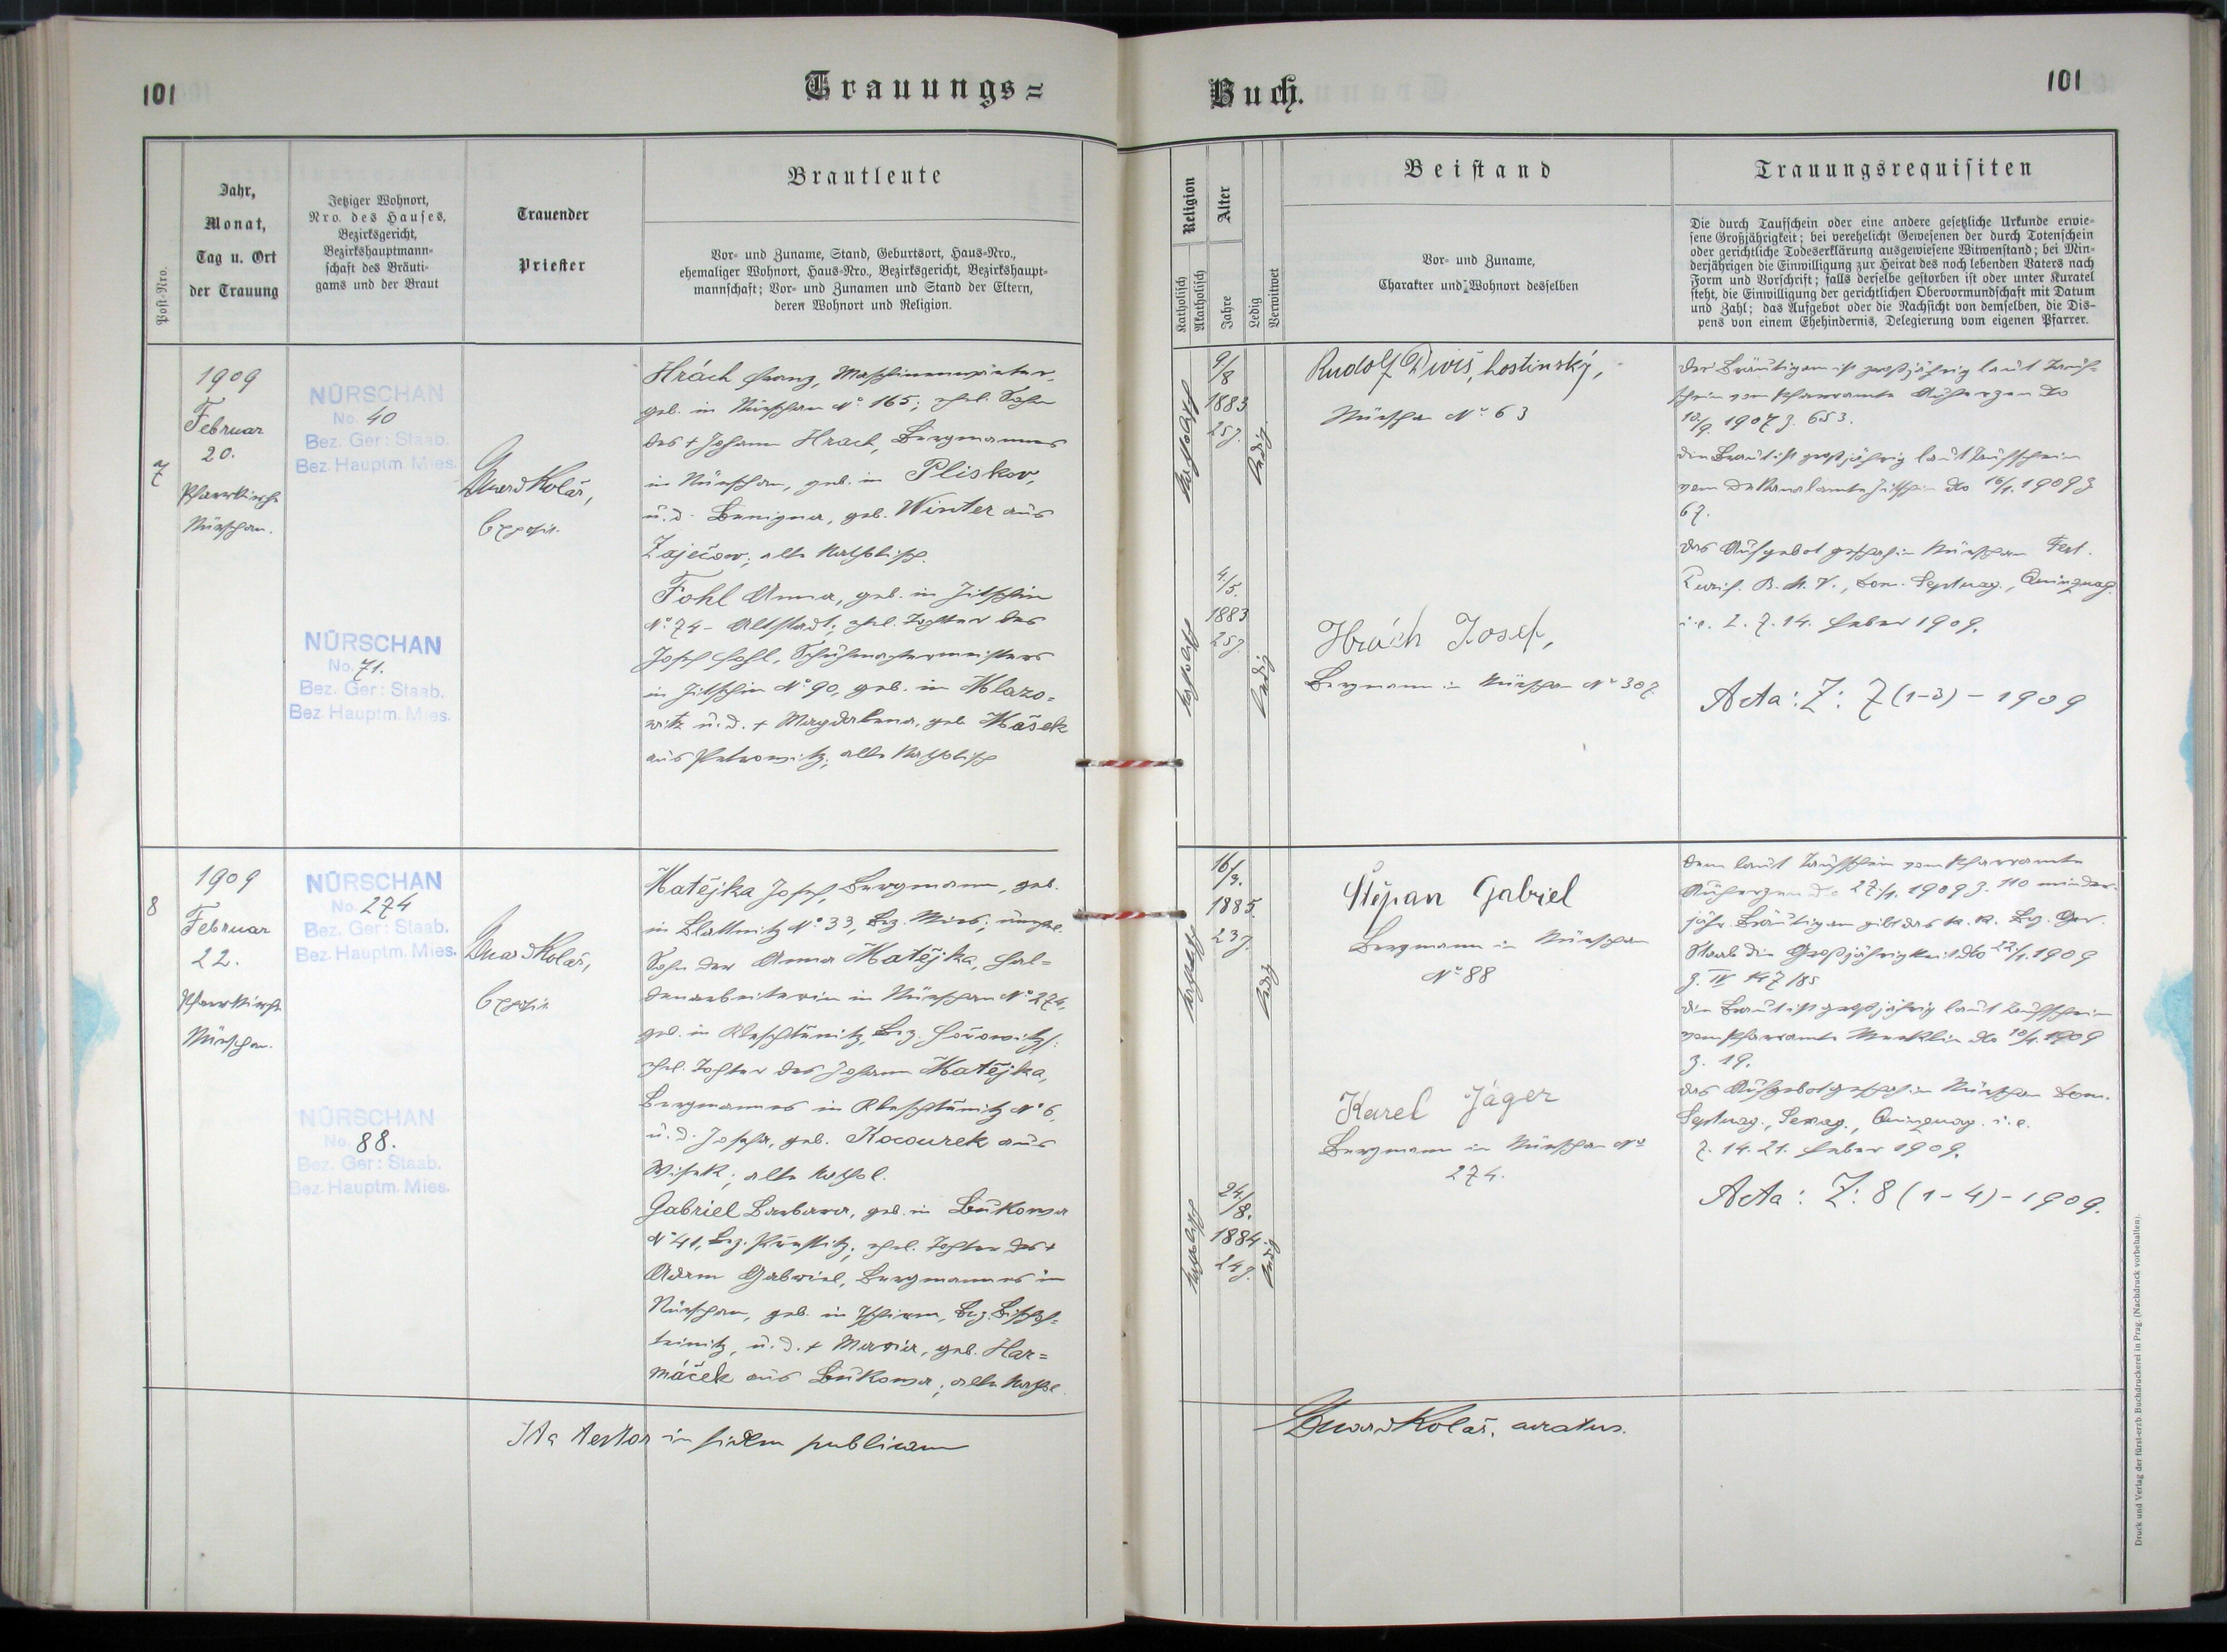 101
Trauungs=
Buch.
101
Post-Nro.
Jahr,
Monat,
Tag u. Ort
der Trauung
Jetziger Wohnort,
Nro. des Hauses,
Bezirksgericht,
Bezirkshauptmann-
schaft des Bräuti-
gams und der Braut
Trauender
Priester
Brautleute
Vor- und Zuname, Stand, Geburtsort, Haus-Nro.,
ehemaliger Wohnort, Haus-Nro., Bezirksgericht, Bezirkshaupt-
mannschaft; Vor- und Zunamen und Stand der Eltern,
deren Wohnort und Religion.
Religion
Katholisch
Akatholisch
Alter
Jahre
Ledig
Verwitwet
Beistand
Vor- und Zuname,
Charakter und Wohnort desselben
Trauungsrequisiten
Die durch Taufschein oder eine andere gesetzliche Urkunde erwie-
sene Großjährigkeit; bei verehelicht Gewesenen der durch Totenschein
oder gerichtliche Todeserklärung ausgewiesene Witwenstand; bei Min-
derjährigen die Einwilligung zur Heirat des noch lebenden Vaters nach
Form und Vorschrift; falls derselbe gestorben ist oder unter Kuratel
steht, die Einwilligung der gerichtlichen Obervormundschaft mit Datum
und Zahl; das Aufgebot oder die Nachsicht von demselben, die Dis-
pens von einem Ehehindernis, Delegierung vom eigenen Pfarrer.
7
1909
Februar
20.
Pfarrkirche
Nürschan.
NÜRSCHAN
No. 40
Bez. Ger: Staab.
Bez. Hauptm. Mies.
NÜRSCHAN
No. 71.
Bez. Ger: Staab.
Bez. Hauptm. Mies.
Eduard Kolář,
Exposit.
Hrách Franz, Maschinenwärter,
geb. in Nürschan No 165; ehel. Sohn
des + Johann Hrach, Bergmannes
in Nürschan, geb. in Pliskov,
u. d. Benigna, geb. Winter aus
Zaječow; alle katholisch.
Fohl Anna, geb. in Jitschin
No 74 - Altstadt; ehel. Tochter des
Josef Fohl, Schuhmachermeisters
in Jitschin No 90, geb. in Mlazo=
witz u. d. + Magdalena, geb. Mašek
aus Petrowitz; alle katholisch
katholisch
9/8
1883
25 J.
ledig
katholisch
4./5.
1883
25 J.
ledig
Rudolf Diviš, hostinský,
Nürschan No 63
Hrách Josef,
Bergmann in Nürschan No 307.
Der Bräutigam ist großjährig laut Tauf=
schein vom Pfarramte Auherzen do
10/9. 1907 Z. 653.
die Braut ist großjährig laut Taufschein
vom Dekanalamte Jitschin do 16/1. 1909 Z
67.
das Aufgebot geschah in Nürschan Fest.
Purif. B. M. V., Dom. Septuag., Quinquag.
i. e. 2. 7. 14. Feber 1909.
Acta: Z: 7 (1-3) - 1909
8
1909
Februar
22.
Pfarrkirche
Nürschan.
NÜRSCHAN
No. 274
Bez. Ger: Staab.
Bez. Hauptm. Mies.
NÜRSCHAN
No. 88.
Bez. Ger: Staab.
Bez. Hauptm. Mies.
Eduard Kolář,
Exposit
Matějka Josef, Bergmann, geb.
in Blattnitz No 33, Bez. Mies; unehel.
Sohn der Anna Matějka, Hal=
denarbeiterin in Nürschan No 274,
geb. in Bez. Hořowitz;
ehel. Tochter des Johann Matějka,
Bergmannes in No 6,
u. d. Josefa, geb. Kocourek aus
Wisek; alle kathol.
Gabriel Barbara, geb. in Bukowa
No 41, Bez. Přestitz; ehel. Tochter des +
Adam Gabriel, Bergmannes in
Nürschan, geb. in Bez. Bischof=
teinitz, u. d. + Maria, geb. Har=
máček aus Bukowa; alle kathol.
katholisch
16/3.
1885
23 J.
ledig
katholisch
24./8.
1884
24 J.
ledig
Štěpan Gabriel
Bergmann in Nürschan
No 88
Karel Jäger
Bergmann in Nürschan No
274.
Dem laut Taufschein vom Pfarramte
Auherzen do 27./1. 1909 Z. 110 minder=
jähr. Bräutigam gibt das k. k. Bez. Ger.
Staab die Großjährigkeit do 22/1. 1909
Z. IV 147/85
die Braut ist großjährig laut Taufschein
vom Pfarramte Merklin do 10/1. 1909
Z. 19.
das Aufgebot geschah in Nürschan Dom.
Septuag., Sexag., Quinquag. i. e.
7. 14. 21. Feber 1909.
Acta: Z: 8 (1-4) - 1909.
Ita testor in fidem publicam
Eduard Kolář, curatus.
Druck und Verlag der fürst-erzb. Buchdruckerei in Prag. (Nachdruck vorbehalten).